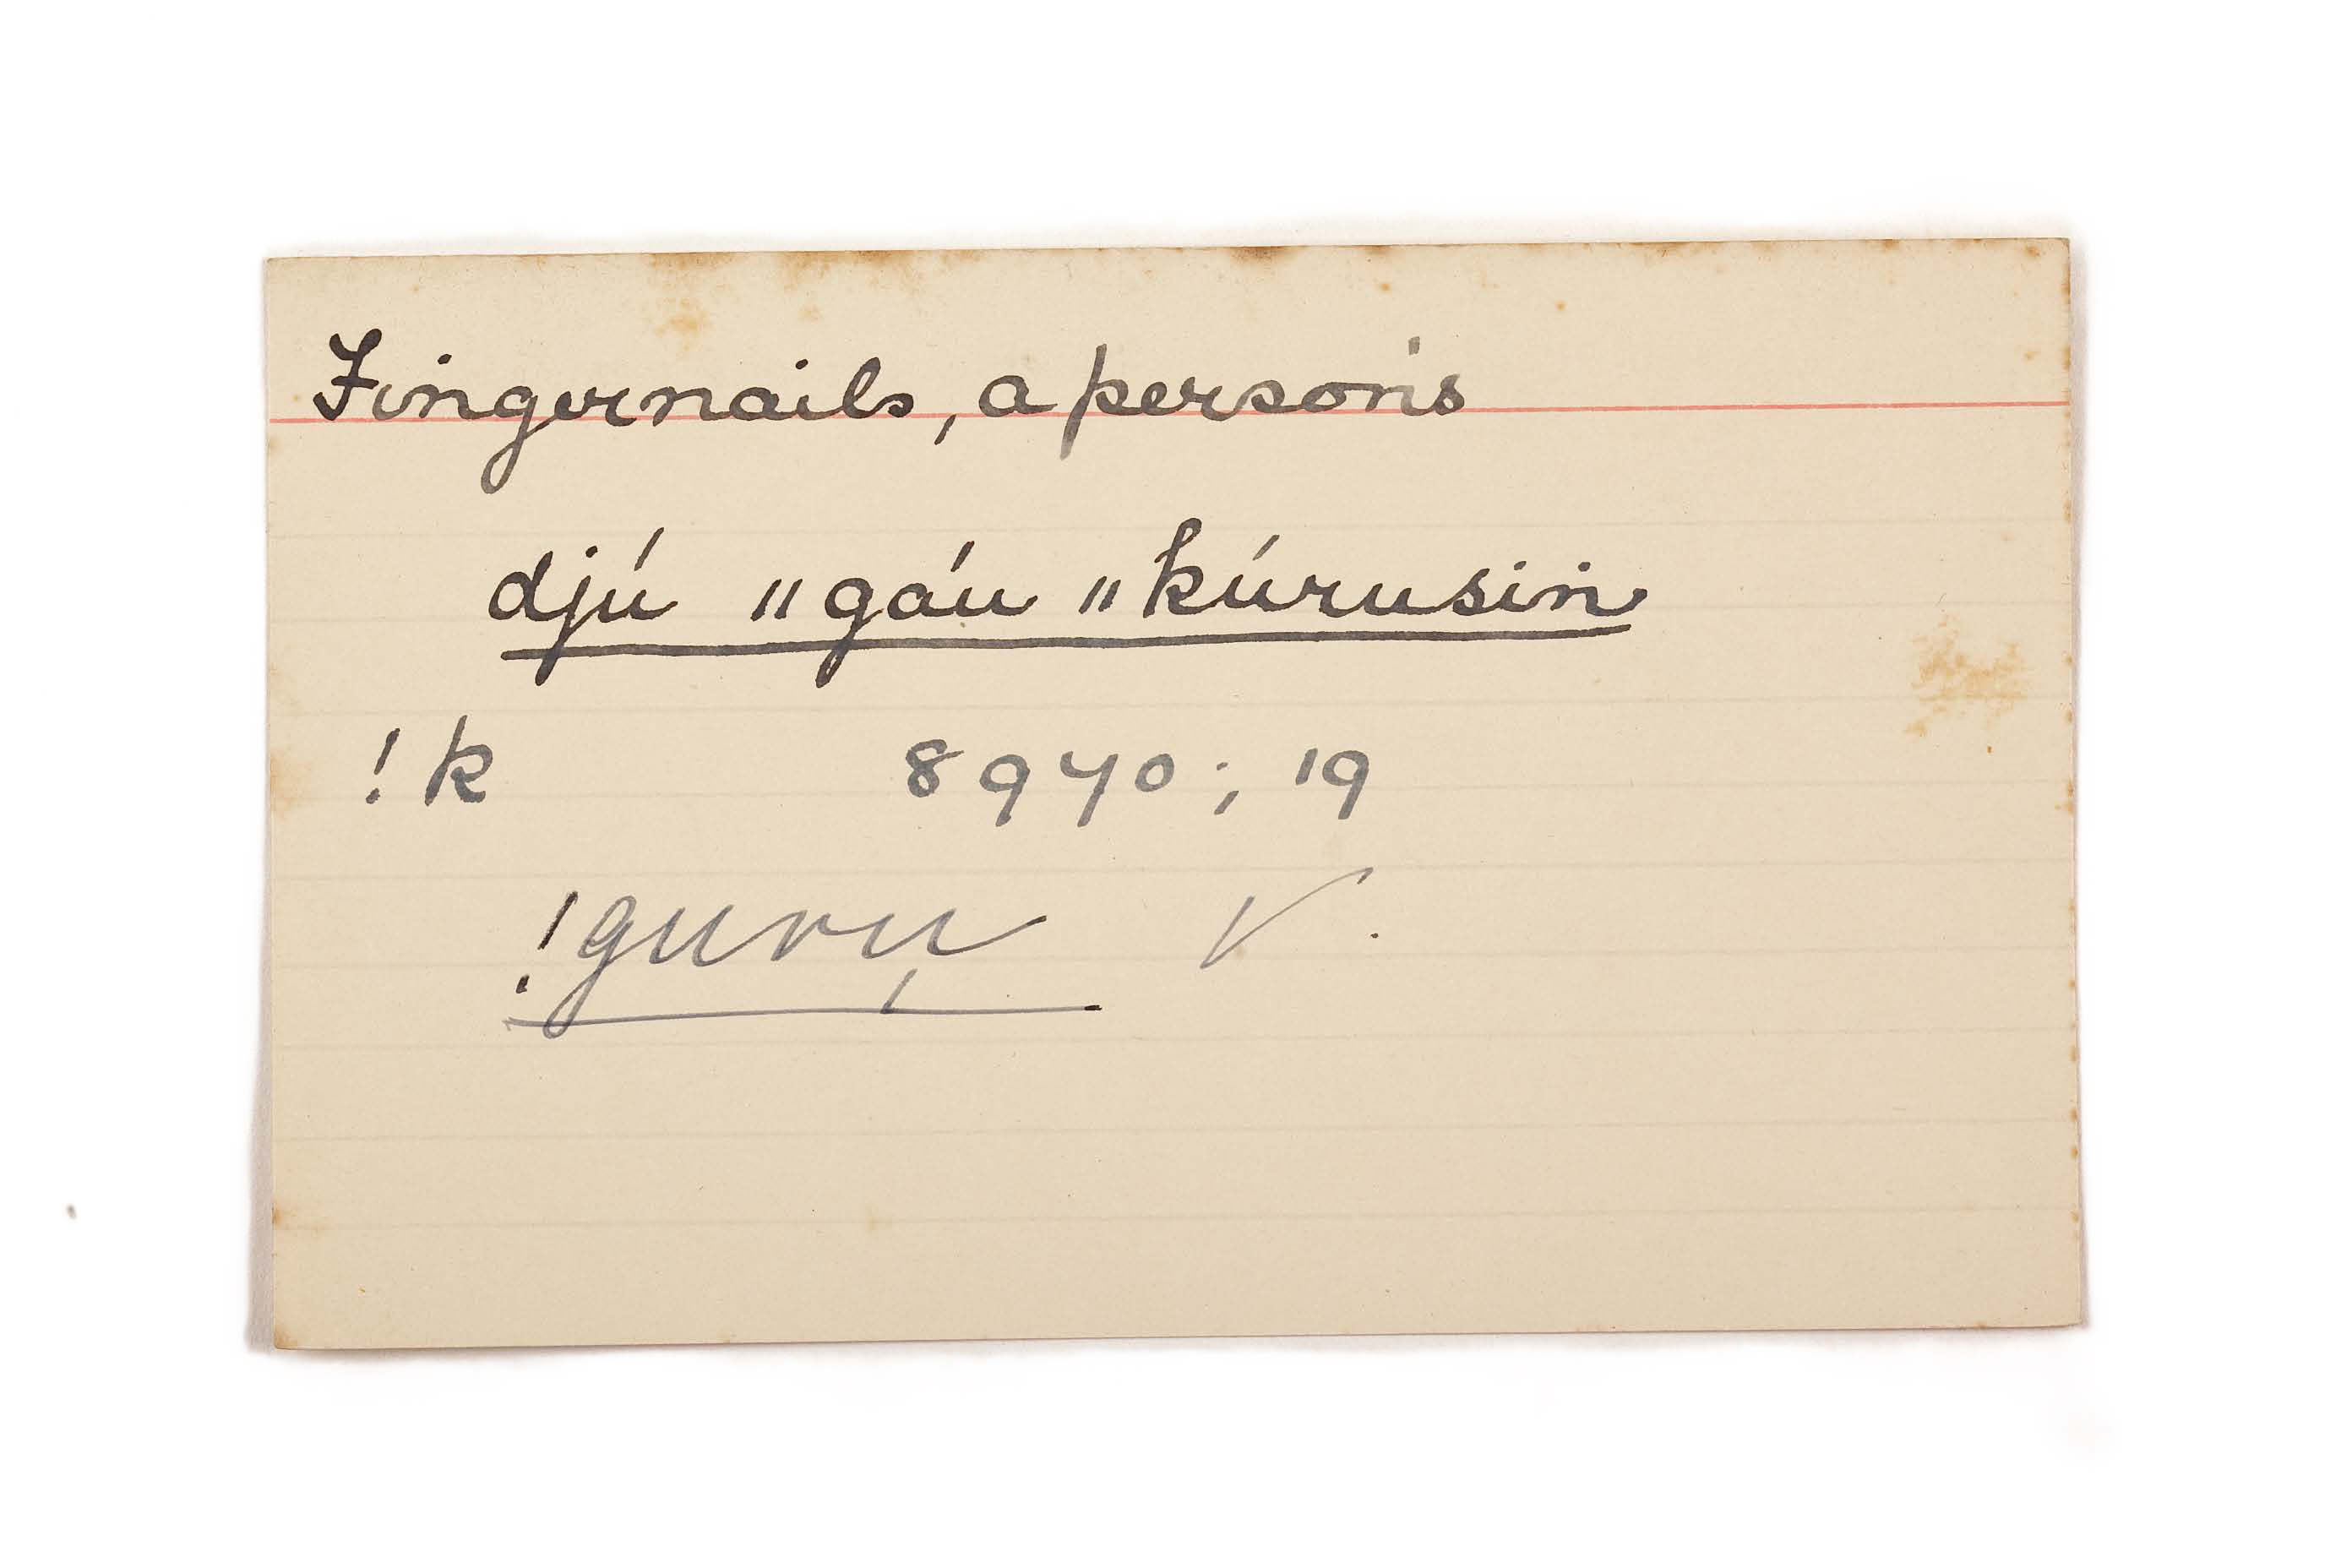 Fingernails, a person's
djú "gáu "kúrusin
!k 8940; 19
!guru̦ V.